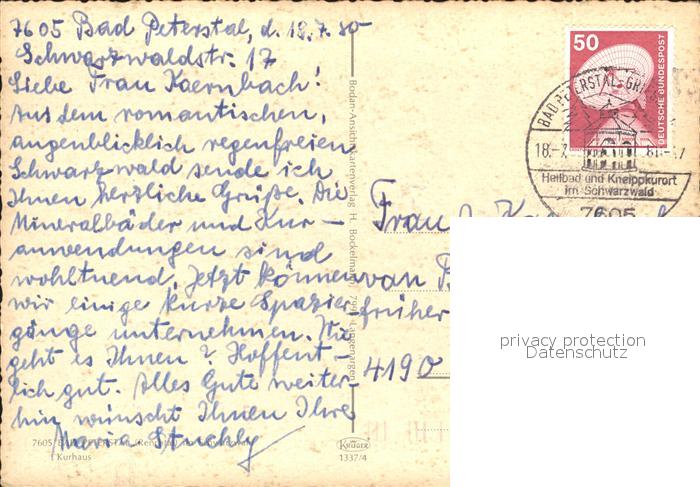 7605 Bad Peterstal, d. 18.7.80
Schwarzwaldstr. 17
Liebe Frau Kaernbach!
Aus dem romantischen,
augenblicklich regenfreien
Schwarzwald sende ich
Ihnen herzliche Grüße. Die
Mineralbäder und Kur-
anwendungen sind
wohltuend. Jetzt können
wir einige kurze Spazier-
gänge unternehmen. Wie
geht es Ihnen? Hoffent-
lich gut. Alles Gute weiter-
hin wünscht Ihnen Ihre
Maria
7605
Kurhaus
Bodan-Ansichtskartenverlag H. Bockelmann, Langenargen
KRÜGER
1337/4
50
DEUTSCHE BUNDESPOST
BAD PETERSTAL-GR
18.-7
Heilbad und Kneippkurort
im Schwarzwald
7605
Frau
van
früher
4190
privacy protection
Datenschutz